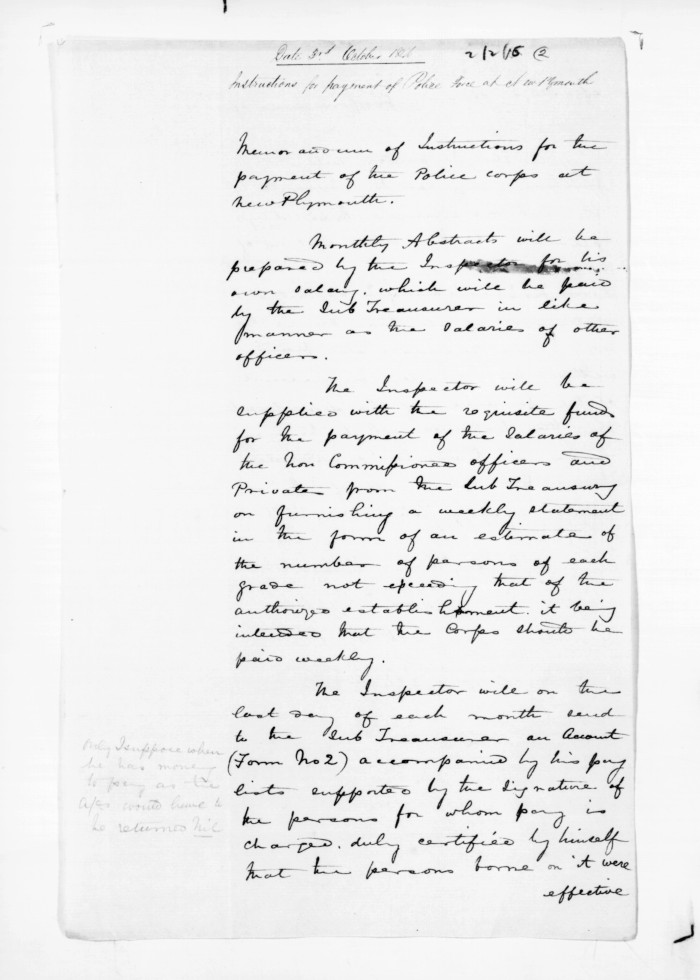 Date 3rd October 2/2/15 (2)
Instructions for payment of Police force at New Plymouth
Memorandum of Instructions for the
payment of the Police corps at
New Plymouth.
Monthly Abstracts will be
prepared by the Inspector for his
own salary. which will be paid
by the Sub Treasurer in like
manner as the Salaries of other
officers.
The Inspector will be
supplied with the requisite funds
for the payment of the Salaries of
the Non Commissioned officers and
Privates from the Sub Treasury
on furnishing a weekly statement
in the form of an estimate of
the number of persons of each
grade not exceeding that of the
authorized establishment. it being
intended that the Corps should be
paid weekly.
The Inspector will on the
last day of each month send
to the Sub Treasurer an Account
(Form No 2) accompanied by his pay
lists supported by the Signature of
the persons for whom pay is
charged. duly certified by himself
that the persons borne on it were
effective
Only I suppose when
he has money
to pay as the
would have to
be returned Nil